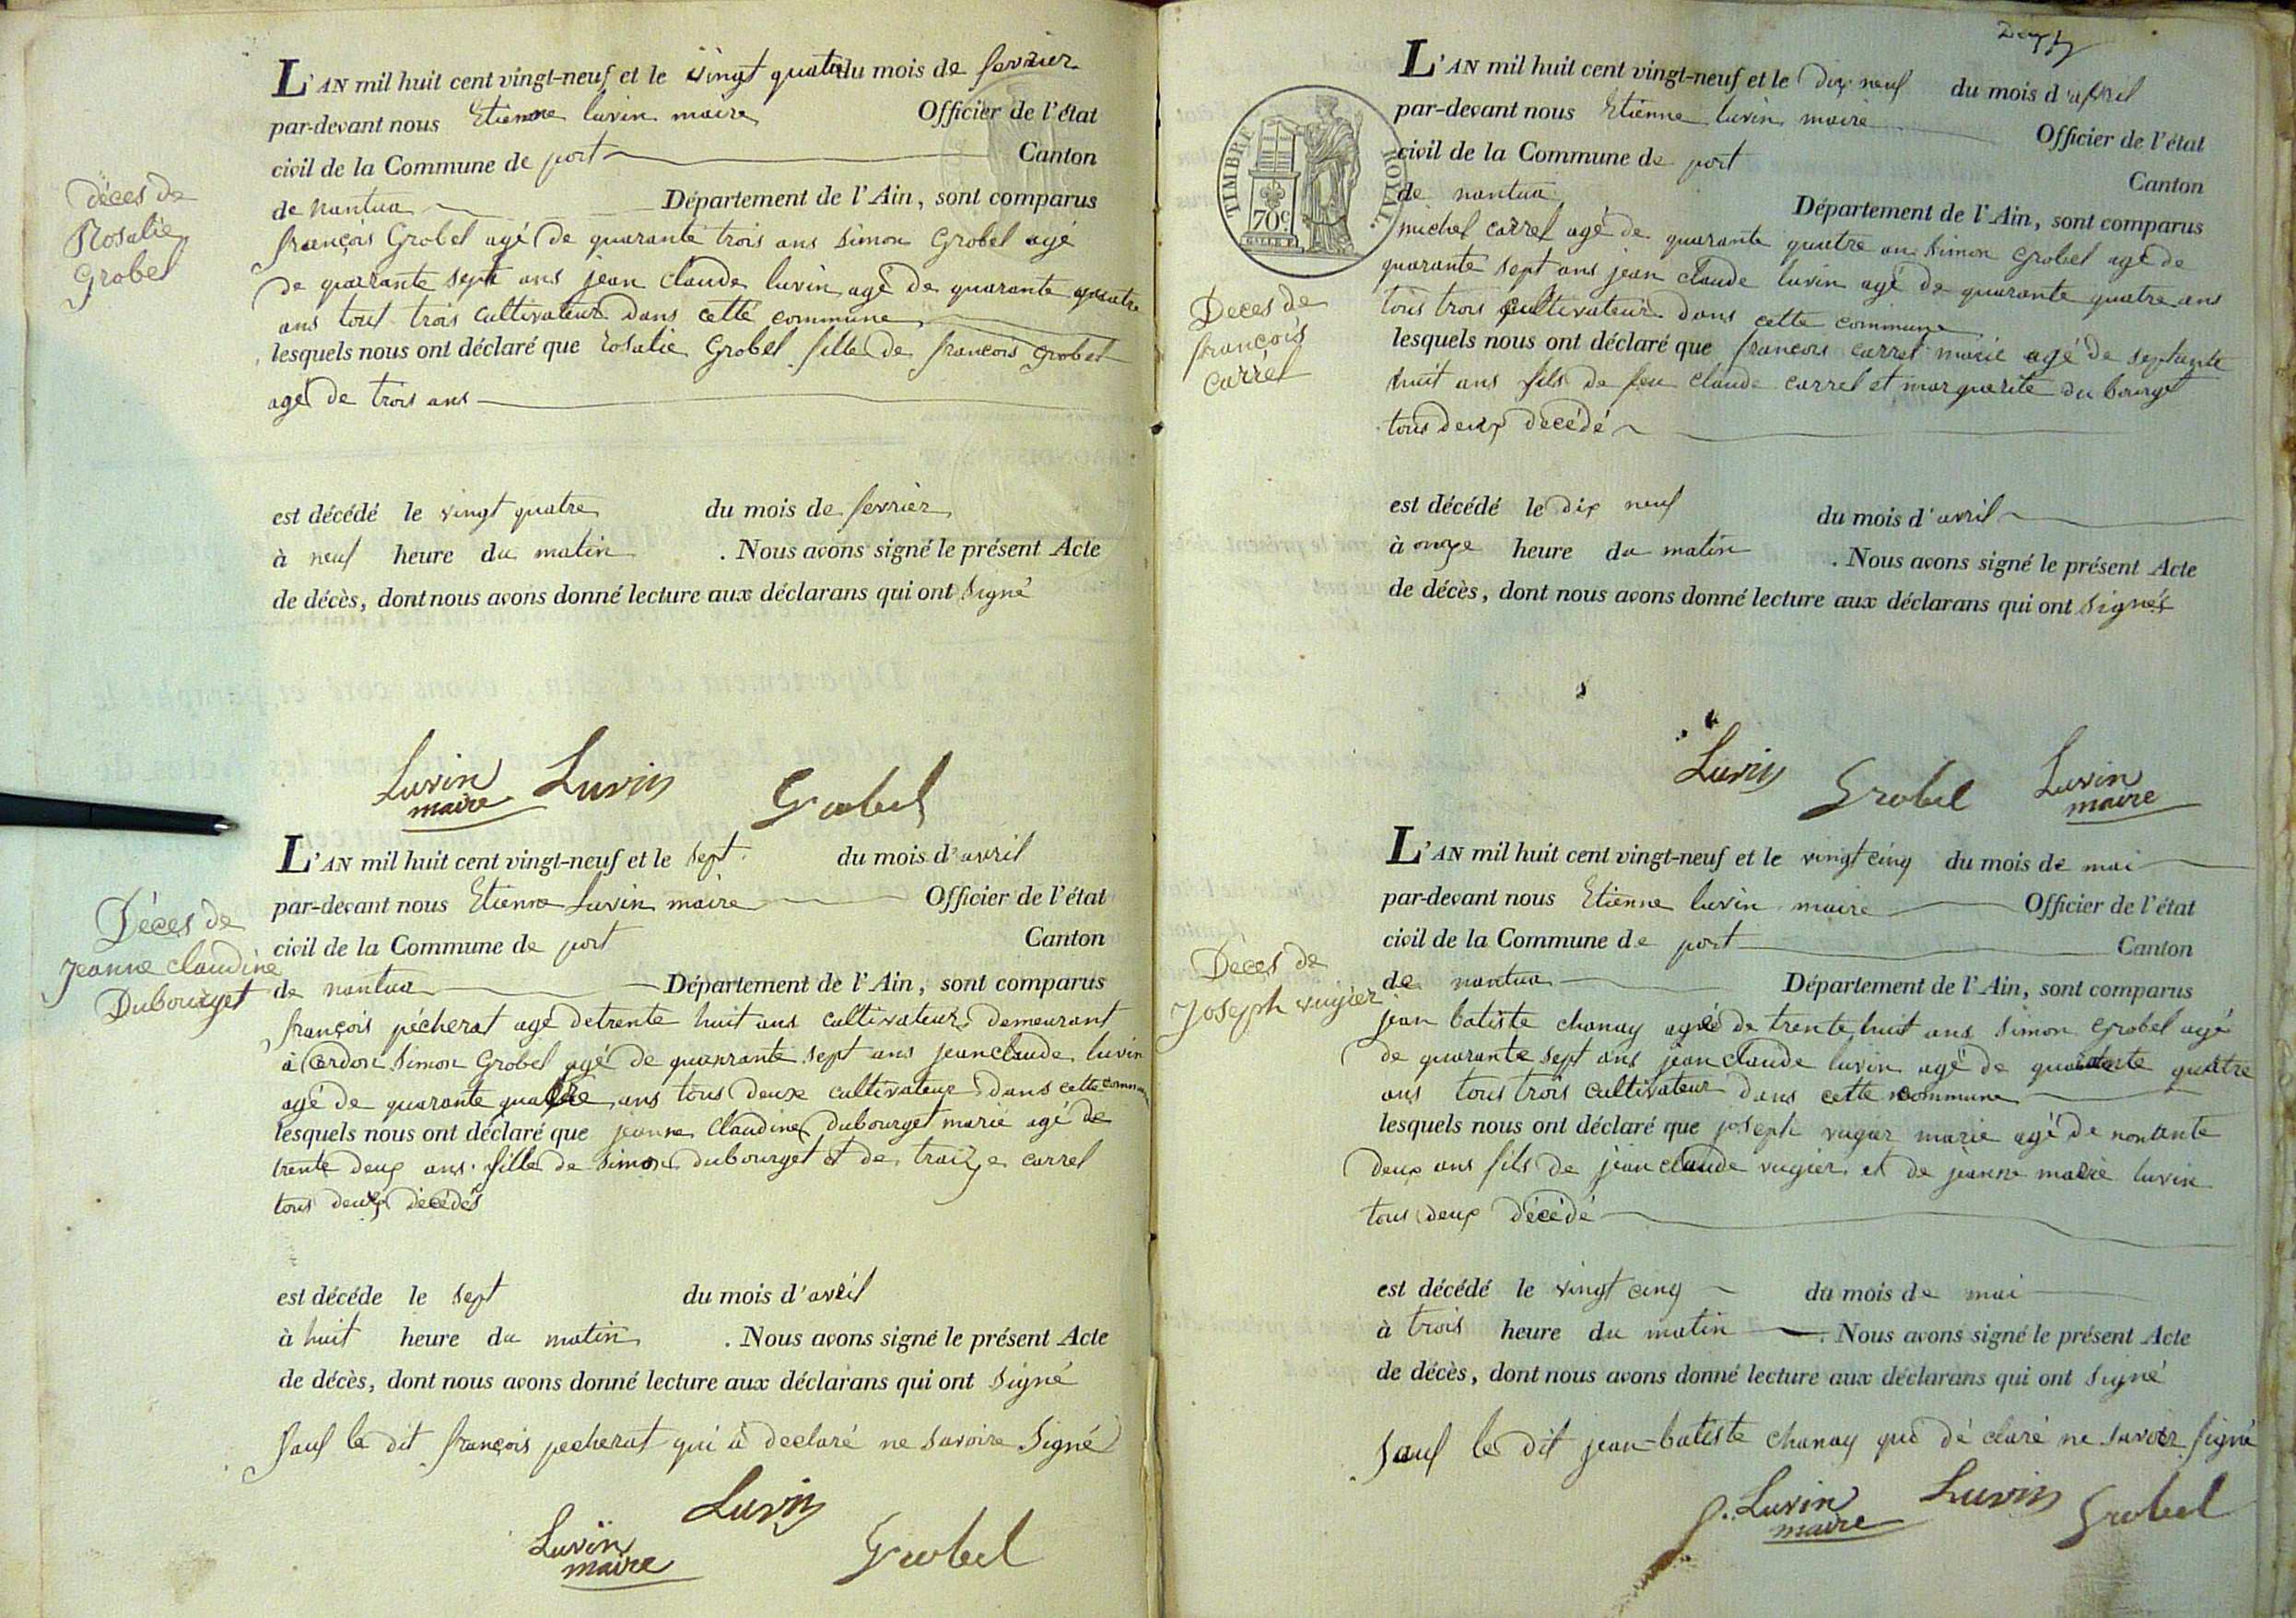 L'AN mil huit cent vingt-neuf et le vingt quatre du mois de fevrier
par-devant nous Etienne luvin maire Officier de l'état
civil de la Commune de port Canton
de nantua Département de l'Ain, sont comparus
françois Grobel agé de quarante trois ans Simon Grobel agé
de quarante sept ans jean claude luvin agé de quarante quatre
ans tous trois cultivateur dans cette commune
lesquels nous ont déclaré que rosalie Grobel fille de françois grobel
agé de trois ans
déces de
Rosalie
Grobel
est décédé le vingt quatre du mois de fevrier
à neuf heure du matin . Nous avons signé le présent Acte
de décès, dont nous avons donné lecture aux déclarans qui ont Signé
Luvin Luvin Grobel
maire
L'AN mil huit cent vingt-neuf et le sept du mois d'avril
par-devant nous Etienne Luvin maire Officier de l'état
civil de la Commune de port Canton
de nantua Département de l'Ain, sont comparus
françois pécherat agé de trente huit ans cultivateur demeurant
à Cerdon Simon Grobel agé de quarante sept ans jean claude luvin
agé de quarante quatre ans tous deux cultivateur dans cette
lesquels nous ont déclaré que jeanne Claudine dubourget marié agé de
trente deux ans fille de Simon dubourget et de carrel
tous deux décédés
Déces de
jeanne claudine
Dubourget
est décéde le sept du mois d'avril
à huit heure du matin . Nous avons signé le présent Acte
de décès, dont nous avons donné lecture aux déclarans qui ont Signé
Sauf le dit françois pecherat qui à declaré ne savoire Signé
Luvin
Luvin Grobel
maire
L'AN mil huit cent vingt-neuf et le dix neuf du mois d'avril
par-devant nous Etienne luvin maire Officier de l'état
civil de la Commune de port Canton
de nantua Département de l'Ain, sont comparus
michel carrel agé de quarante quatre ans Simon Grobel agé de
quarante sept ans jean claude luvin agé de quarante quatre ans
tous trois cultivateur dans cette commune
lesquels nous ont déclaré que françois carrel marié agé de septante
huit ans fils de feu claude carrel et marguerite du bourget
tous deux décédé
TIMBRE ROYAL.
70c
Deces de
françois
carrel
est décédé le dix neuf du mois d'avril
à onze heure du matin . Nous avons signé le présent Acte
de décès, dont nous avons donné lecture aux déclarans qui ont Signés
Luvin Grobel Luvin
maire
L'AN mil huit cent vingt-neuf et le vingt cinq du mois de mai
par-devant nous Etienne luvin maire Officier de l'état
civil de la Commune de port Canton
de nantua Département de l'Ain, sont comparus
jean batiste chanay agé de trente huit ans Simon Grobel agé
de quarante sept ans jean claude luvin agé de quarante quatre
ans tous trois cultivateur dans cette commune
lesquels nous ont déclaré que joseph vugier marié agé de nontante
deux ans fils de jean claude vugier et de jeanne marie luvin
tous deux décédé
Déces de
Joseph vugier
est décédé le vingt cinq du mois de mai
à trois heure du matin . Nous avons signé le présent Acte
de décès, dont nous avons donné lecture aux déclarans qui ont Signé
Sauf le dit jean-batiste chanay qui dé claré ne savoir Signé
Luvin Luvin Grobel
maire